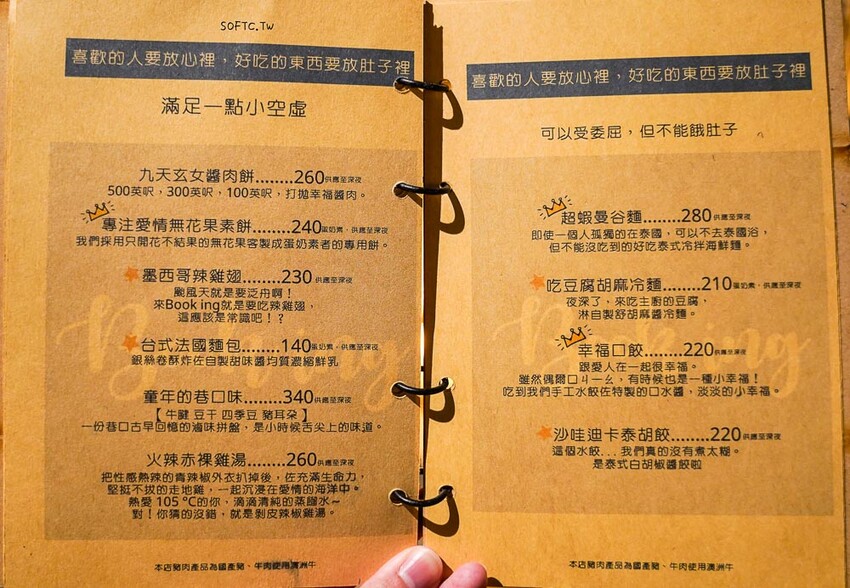 SOFTC.TW
喜歡的人要放心裡，好吃的東西要放肚子裡
滿足一點小空虛
九天玄女醬肉餅........260供應至深夜
500英呎，300英呎，100英呎，打拋幸福醬肉。
專注愛情無花果素餅........240蛋奶素，供應至深夜
我們採用只開花不結果的無花果客製成蛋奶素者的專用餅。
墨西哥辣雞翅........230供應至深夜
颱風天就是要泛舟啊！
來Booking就是要吃辣雞翅，
這應該是常識吧！？
台式法國麵包........140蛋奶素，供應至深夜
銀絲卷酥炸佐自製甜味醬均質濃縮鮮乳
童年的巷口味........340供應至深夜
【牛腱 豆干 四季豆 豬耳朵】
一份巷口古早回憶的滷味拼盤，是小時候舌尖上的味道。
火辣赤裸雞湯........260供應至深夜
把性感熱辣的青辣椒外衣扒掉後，佐充滿生命力，
堅挺不拔的走地雞，一起沉浸在愛情的海洋中。
熱愛 105 °C的你，滴滴清純的蒸餾水~
對！你猜的沒錯，就是剝皮辣椒雞湯。
本店豬肉產品為國產豬、牛肉使用澳洲牛
喜歡的人要放心裡，好吃的東西要放肚子裡
可以受委屈，但不能餓肚子
超蝦曼谷麵........280供應至深夜
即使一個人孤獨的在泰國，可以不去泰國浴，
但不能沒吃到的好吃泰式冷拌海鮮麵。
吃豆腐胡麻冷麵........210蛋奶素，供應至深夜
夜深了，來吃主廚的豆腐，
淋自製舒胡麻醬冷麵。
幸福口餃........220供應至深夜
跟愛人在一起很幸福。
雖然偶爾ㄩㄐㄧㄠ，有時候也是一種小幸福！
吃到我們手工水餃佐特製的口水醬，淡淡的小幸福。
沙哇迪卡泰胡餃........220供應至深夜
這個水餃...我們真的沒有煮太糊。
是泰式白胡椒醬餃啦
Booking
本店豬肉產品為國產豬、牛肉使用澳洲牛